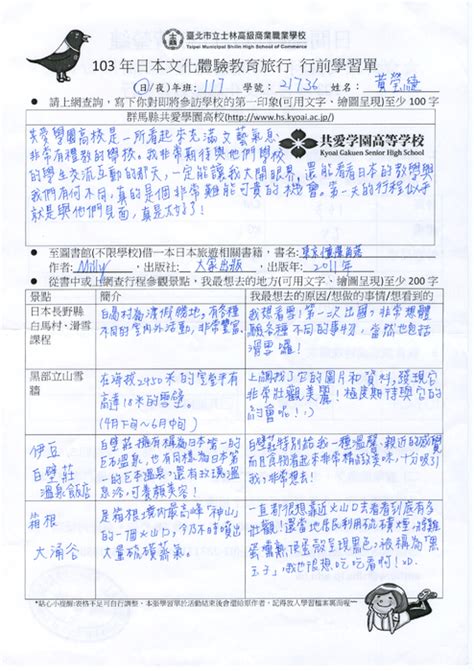 臺北市立士林高級商業職業學校
Taipei Municipal Shilin High School of Commerce
103 年日本文化體驗教育旅行 行前學習單
(日/夜)年班:117 學號:21736 姓名:黃瑩
請上網查詢,寫下你對即將參訪學校的第一印象(可用文字、繪圖呈現)至少 100 字
群馬縣共愛學園高校(http://www.hs.kyoai.ac.jp/)
共愛学園高等学校
Kyoai Gakuen Senior High School
共愛學園高校是一所看起來充滿文藝氣息、
非常有禮教的學校。我非常期待與他們學校
的學生交流互動的那天,一定能讓我大開眼界,還能看看日本的教學與
我們有何不同,真的是個非常難能可貴的機會,第一天的行程似乎
就是與他們見面,真是太好了!
至圖書館(不限學校)借一本日本旅遊相關書籍,書名:東京
作者:Milly,出版社:出版,出版年:2011年
從書中或上網查行程參觀景點,我最想去的地方(可用文字、繪圖呈現)至少 200 字
景點 簡介 我最想去的原因/想做的事情/想看到的
日本長野縣
白馬村-滑雪
課程
白馬村為渡假勝地,有各種
不同的室內外活動,非常豐富。
我想看雪!第一次出國,非常想體
驗各種不同的事物,當然也包括
滑雪囉!
黑部立山雪
牆
在海拔2450米的室堂平有
高達18米的雪壁。
(4月下旬~6月中旬)
上網找了它的圖片和資料,發現它
非常壯觀美麗!極度期待與它的
約會呢!:)
伊豆
白壁莊
溫泉飯店
白壁莊擁有稱為日本第一的
巨石溫泉,也有同樣為日本第
一的巨木溫泉,還有玫瑰溫
泉浴,可養顏美容!
白壁莊特別給我一種溫馨、親近的感覺
而且食物看起來非常精緻美味,十分吸引
我,非常想去!
箱根
大涌谷
是箱根境內最高峰「神山」
的一個火山口,今乃不時噴出
大量硫磺蒸氣。
一直都很想靠近火山口去看看到底有多
壯觀!還當地居民利用硫磺
蛋殼呈現黑色,被稱為「黑
玉子」,我也很想吃吃看啊!XD
*貼心小提醒:表格不足可自行調整,本張學習單於活動結束後會還給原作者,記得放入學習檔案裏面喔~